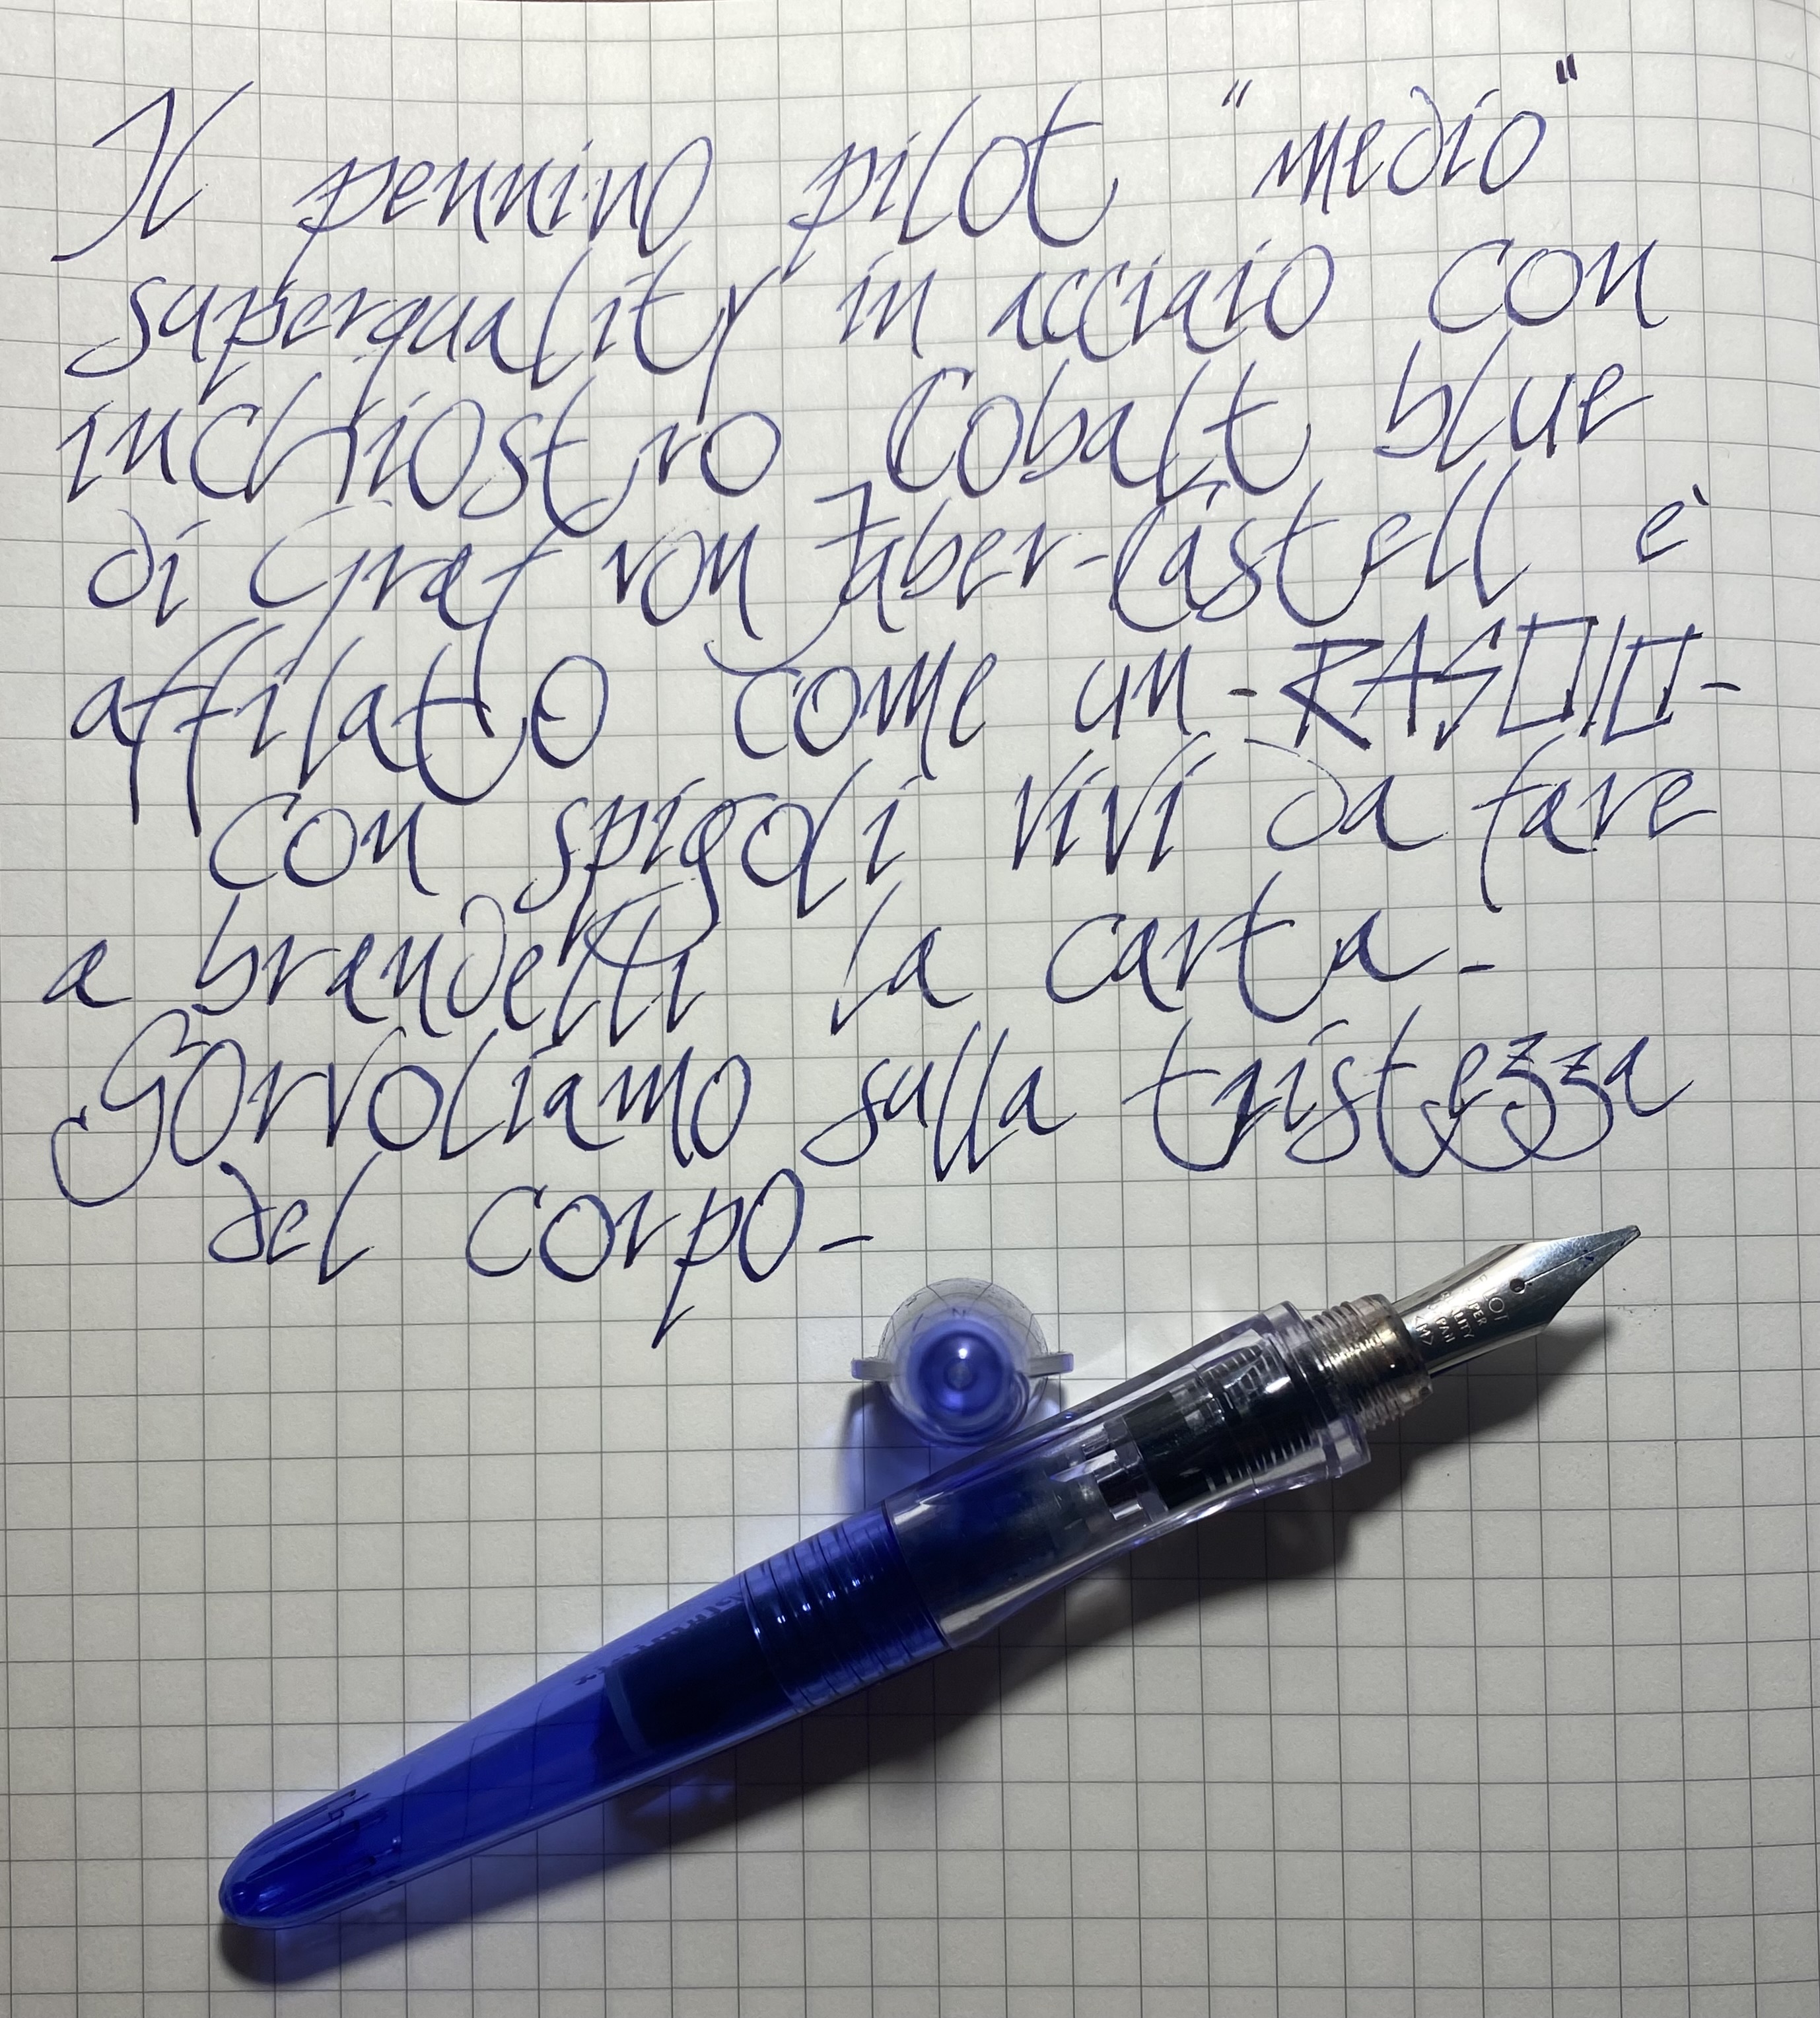 Il pennino pilot "medio"
superquality in acciaio con
inchiostro Cobalt blue
di Graf von Faber-Castell è
affilato come un -RASOIO-
con spigoli vivi da fare
a brandelli la carta-
Sorvoliamo sulla tristezza
del corpo-
SUPER
QUALITY
JAPAN
<M>